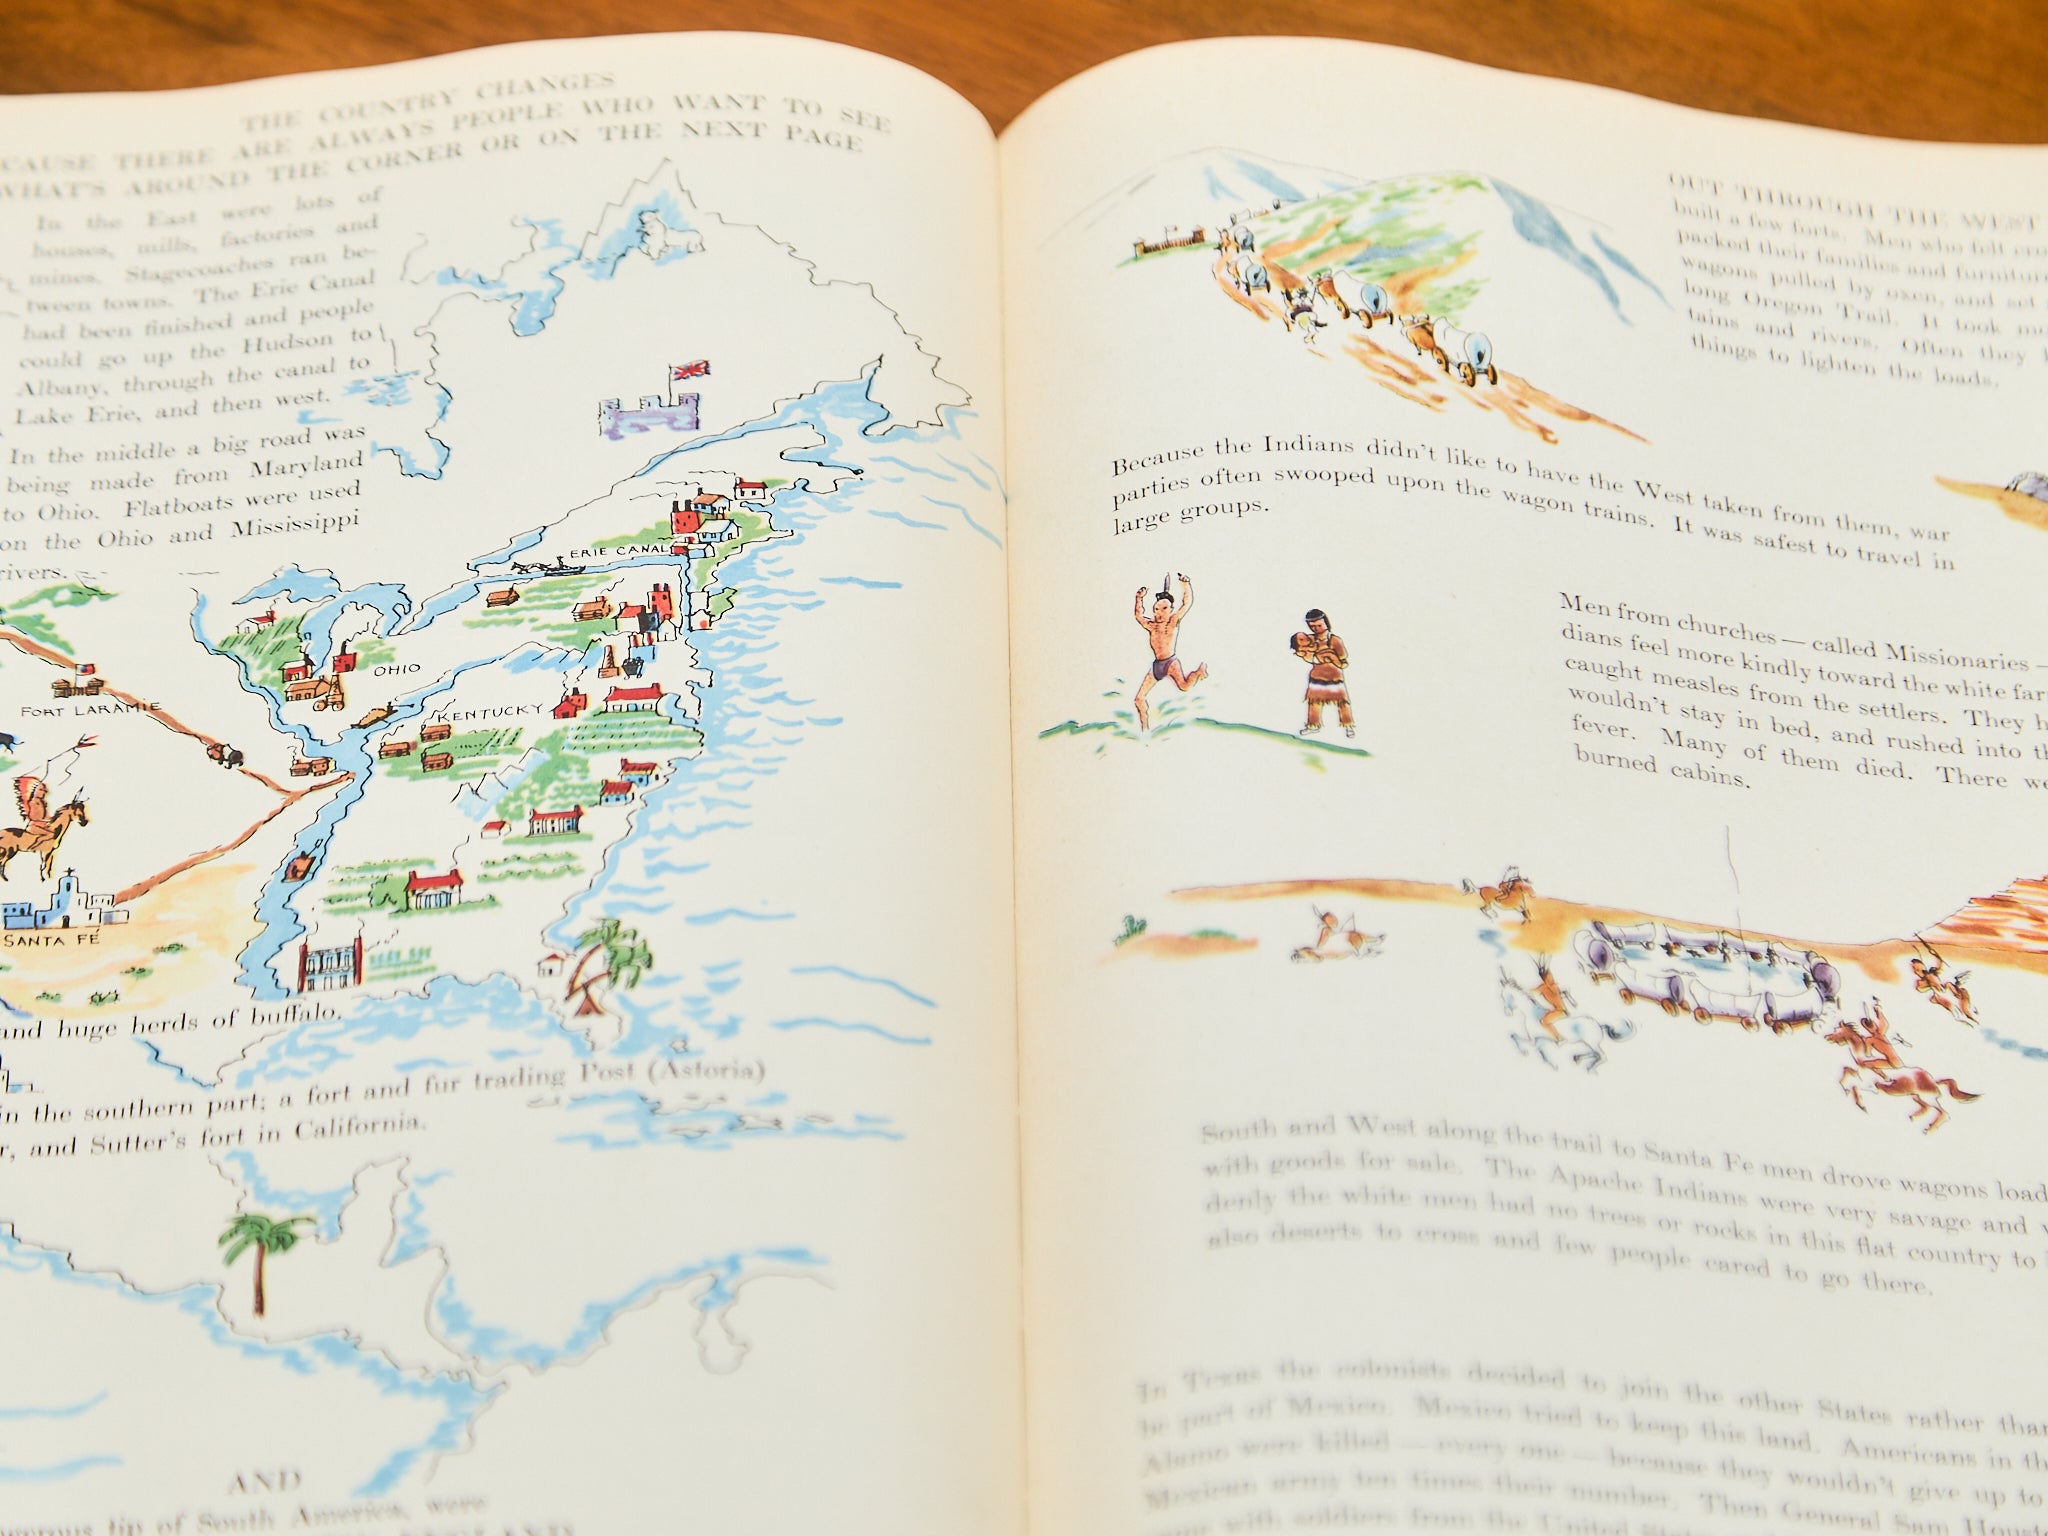 THE COUNTRY CHANGES
CAUSE THERE ARE ALWAYS PEOPLE WHO WANT TO SEE
WHAT'S AROUND THE CORNER OR ON THE NEXT PAGE
In the East were lots of
houses, mills, factories and
mines. Stagecoaches ran be-
tween towns. The Erie Canal
had been finished and people
could go up the Hudson to
Albany, through the canal to
Lake Erie, and then west.
In the middle a big road was
being made from Maryland
to Ohio. Flatboats were used
on the Ohio and Mississippi
rivers.
ERIE CANAL
OHIO
KENTUCKY
FORT LARAMIE
SANTA FE
and huge herds of buffalo.
in the southern part; a fort and fur trading Post (Astoria)
r, and Sutter's fort in California.
AND
tip of South America, were
OUT THROUGH THE WEST
built a few forts. Men who felt
packed their families and furniture
wagons pulled by oxen, and set
long Oregon Trail. It took
tains and rivers. Often they
things to lighten the loads.
Because the Indians didn't like to have the West taken from them, war
parties often swooped upon the wagon trains. It was safest to travel in
large groups.
Men from churches — called Missionaries —
dians feel more kindly toward the white
caught measles from the settlers. They
wouldn't stay in bed, and rushed into
fever. Many of them died. There
burned cabins.
South and West along the trail to Santa Fe men drove wagons
with goods for sale. The Apache Indians were very savage and
denly the white men had no trees or rocks in this flat country to
also deserts to cross and few people cared to go there.
In Texas the colonists decided to join the other States rather than
be part of Mexico. Mexico tried to keep this land. Americans in the
Alamo were killed — every one — because they wouldn't give up to
Mexican army ten times their number. Then General Sam
came with soldiers from the United